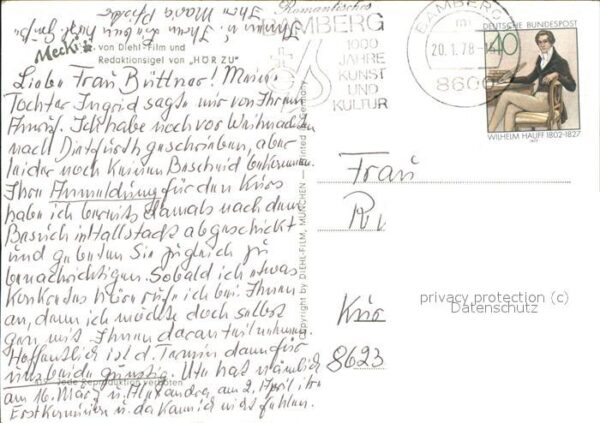 Ihnen u. Ihrem
Ihre Maria
Romantisches
BAMBERG
1000
JAHRE
KUNST
UND
KULTUR
BAMBERG
m
20.1.78
8600
DEUTSCHE BUNDESPOST
40
WILHELM HAUFF 1802-1827
Mecki von Diehl-Film und
Redaktionsigel von „HÖR ZU"
Liebe Frau Büttner! Meine
Tochter Ingrid sagte mir von Ihrem
Anruf. Ich habe noch vor Weihnachten
nach geschrieben, aber
leider noch keinen Bescheid bekommen.
Ihre Anmeldung für den Kurs
habe ich bereits damals nach dem
Besuch in Hallstadt abgeschickt
und gebeten Sie zugleich zu
benachrichtigen. Sobald ich etwas
Konkretes höre rufe ich bei Ihnen
an, denn ich möchte doch selbst
gern mit Ihnen daran teilnehmen.
Hoffentlich ist d. Termin dann für
uns beide günstig. Uta hat nämlich
Jede Reproduktion verboten
am 16. März u. Alexandra am 2. April ihre
Erstkommunion u. da kann ich nicht fehlen.
Copyright by DIEHL-FILM, MÜNCHEN — Printed in Germany
Frau
8623
privacy protection (c)
Datenschutz